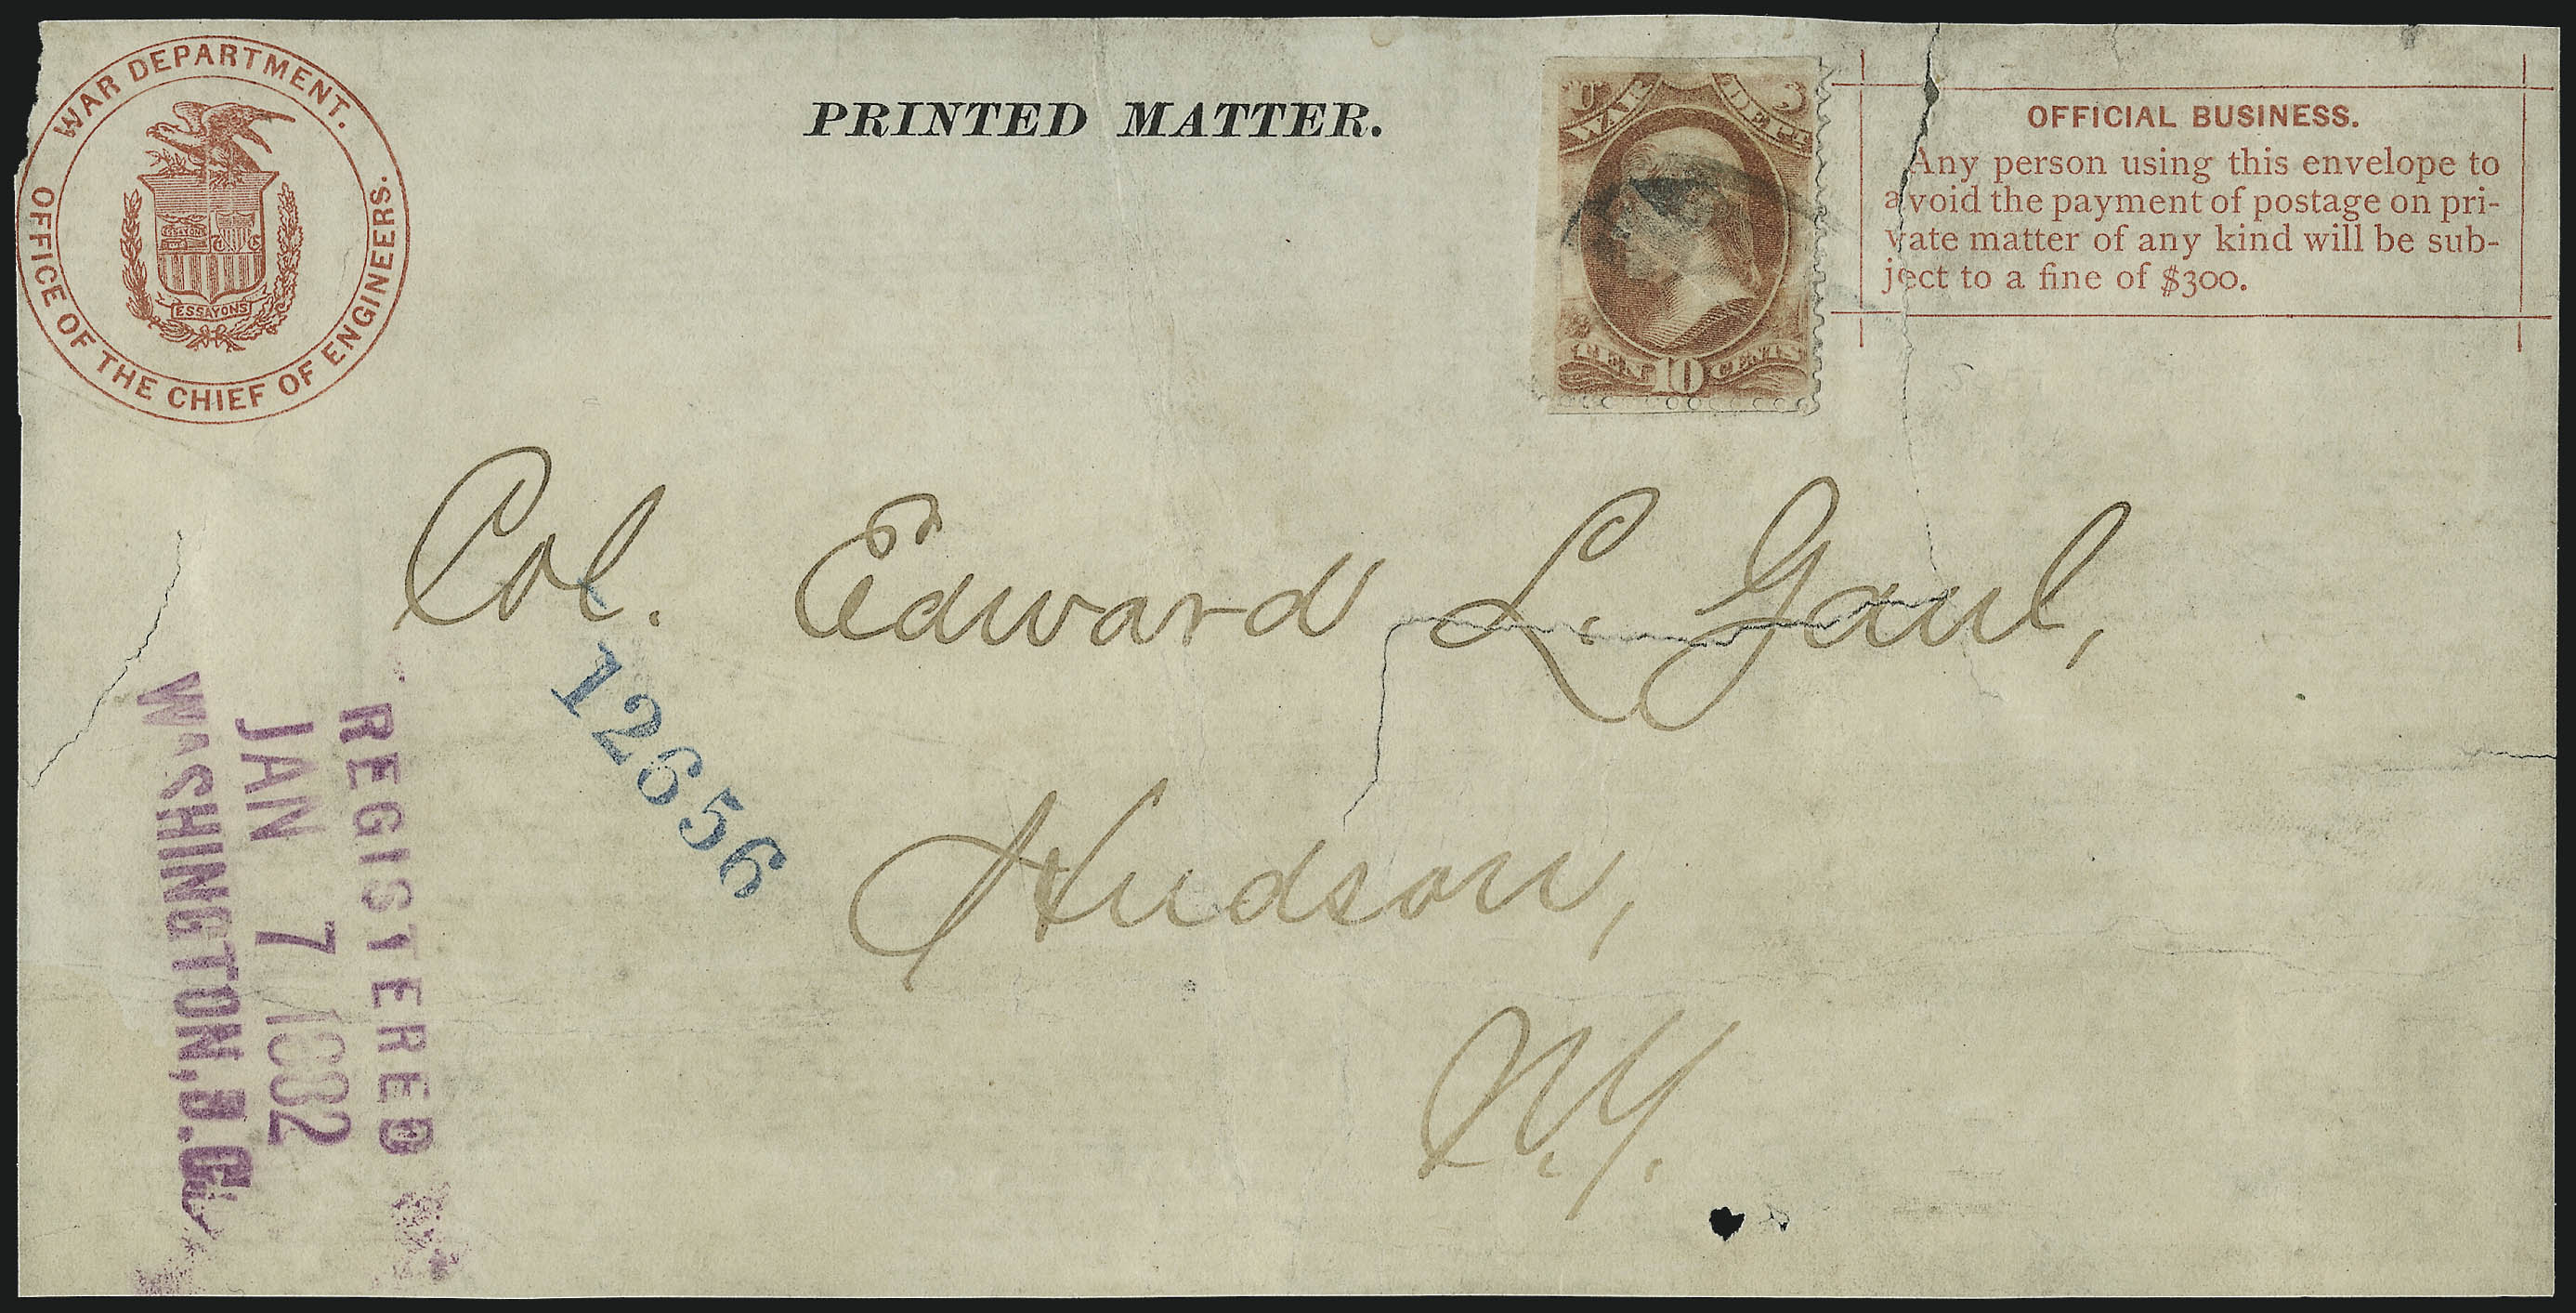 WAR DEPARTMENT.
OFFICE OF THE CHIEF OF ENGINEERS.
ESSAYONS
PRINTED MATTER.
U S
WAR DEPT
TEN 10 CENTS
OFFICIAL BUSINESS.
Any person using this envelope to
avoid the payment of postage on pri-
vate matter of any kind will be sub-
ject to a fine of $300.
Col. Edward L. Gaul,
Hudson,
N.Y.
12656
REGISTERED
JAN 7 1882
WASHINGTON, D.C.